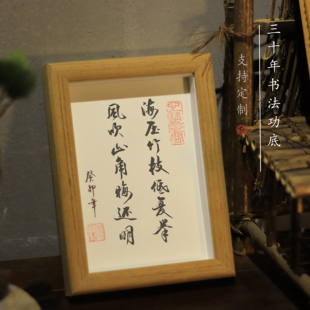 三十年书法功底
支持定制
海压竹枝低复举
風吹山角晦还明
癸卯年